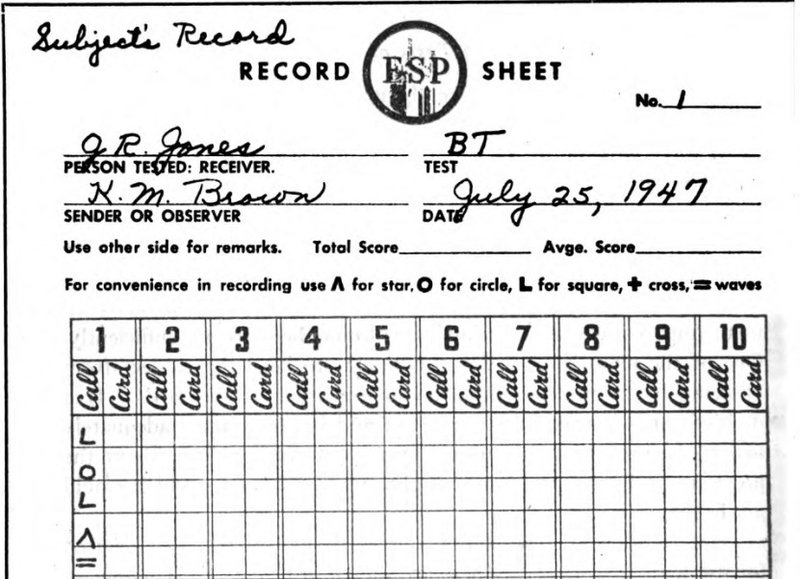 Subject's Record
RECORD ESP SHEET
No. 1
J. R. Jones BT
PERSON TESTED: RECEIVER. TEST
K. M. Brown July 25, 1947
SENDER OR OBSERVER DATE
Use other side for remarks. Total Score Avge. Score
For convenience in recording use Λ for star, O for circle, L for square, + cross, = waves
1 2 3 4 5 6 7 8 9 10
Call Card Call Card Call Card Call Card Call Card Call Card Call Card Call Card Call Card Call Card
L
O
L
Λ
=